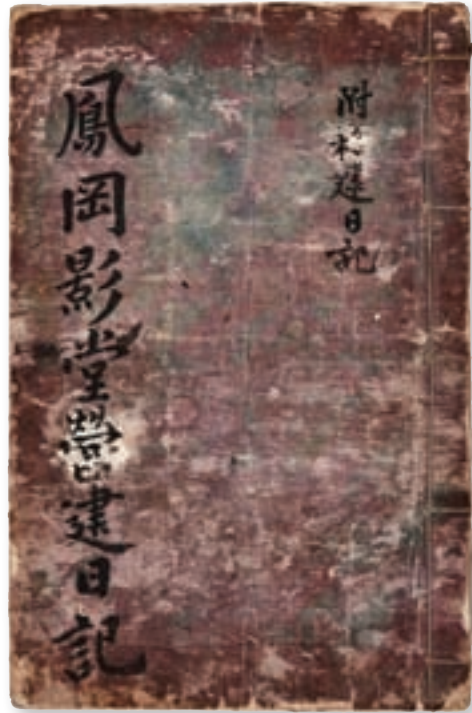 附建日記
鳳岡影堂營建日記